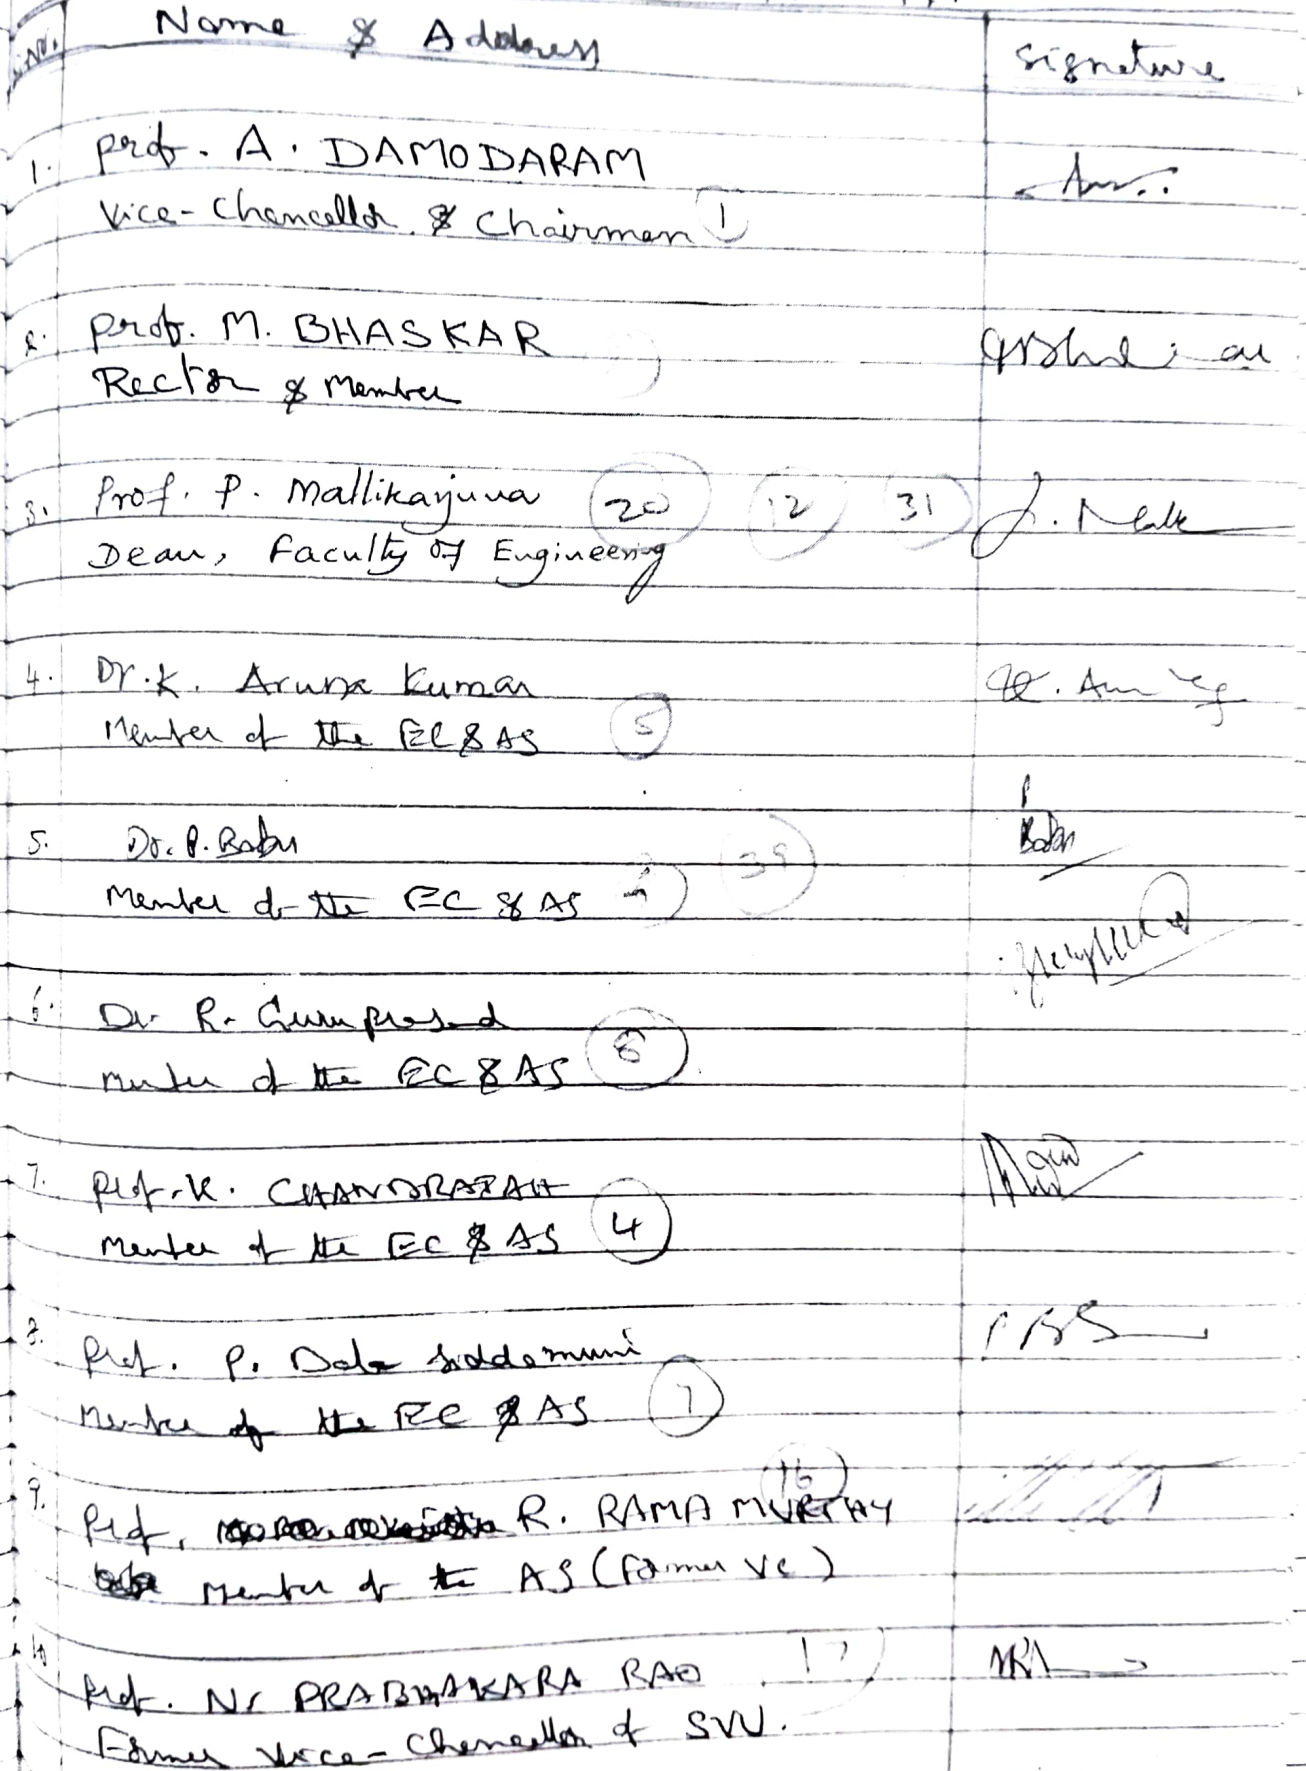 S.No. Name & Address Signature
1. Prof. A. DAMODARAM
Vice-Chancellor & Chairman 1
2. Prof. M. BHASKAR
Rector & Member
3. Prof. P. Mallikarjuna 20 12 31
Dean, Faculty of Engineering
4. Dr. K. Aruna Kumar
Member of the EC & AS 5
5. Dr. P. Babu 39 Babu
Member of the EC & AS
6. Dr. R. Guruprasad
Member of the EC & AS 8
7. Prof. K. CHANDRAIAH
Member of the EC & AS 4
8. Prof. P. Bala Siddamuni
Member of the EC & AS 7
9. Prof. R. RAMA MURTHY 16
Member of the AS (Former VC)
10 Prof. N. PRABHAKARA RAO
Former Vice-Chancellor of SVU.